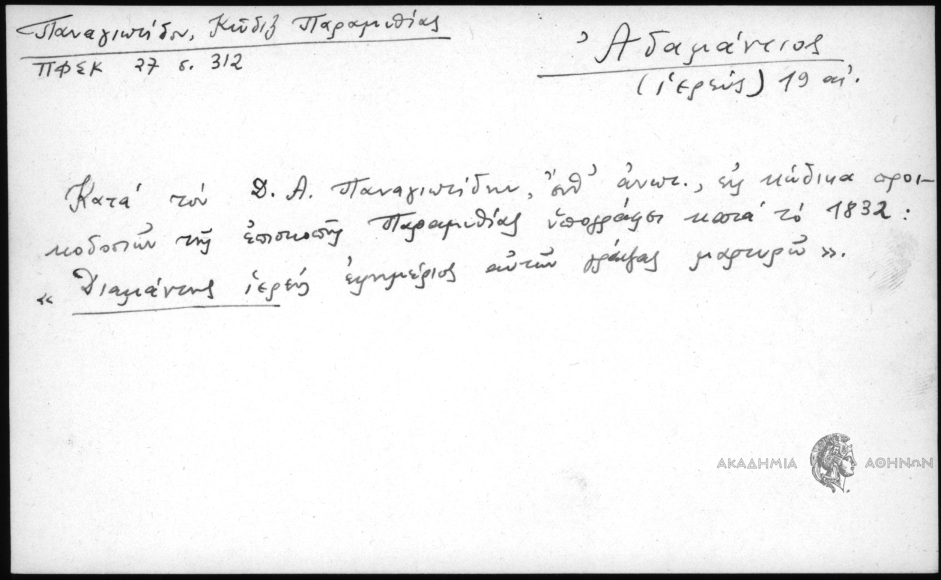 Παναγιωτίδου, Κῶδιξ Παραμυθίας
ΠΦΣΚ 27 σ. 312
Ἀδαμάντιος
(ἱερεύς) 19 αἰ.
Κατά τόν Δ. Α. Παναγιωτίδην, ἔνθ' ἀνωτ., εἰς κώδικα προι-
κοδοσιῶν τῆς ἐπισκοπῆς Παραμυθίας ὑπογράφει κατά τό 1832 :
« Διαμάντης ἱερεύς ἐφημέριος αὐτῶν γράψας μαρτυρῶ ».
ΑΚΑΔΗΜΙΑ ΑΘΗΝΩΝ